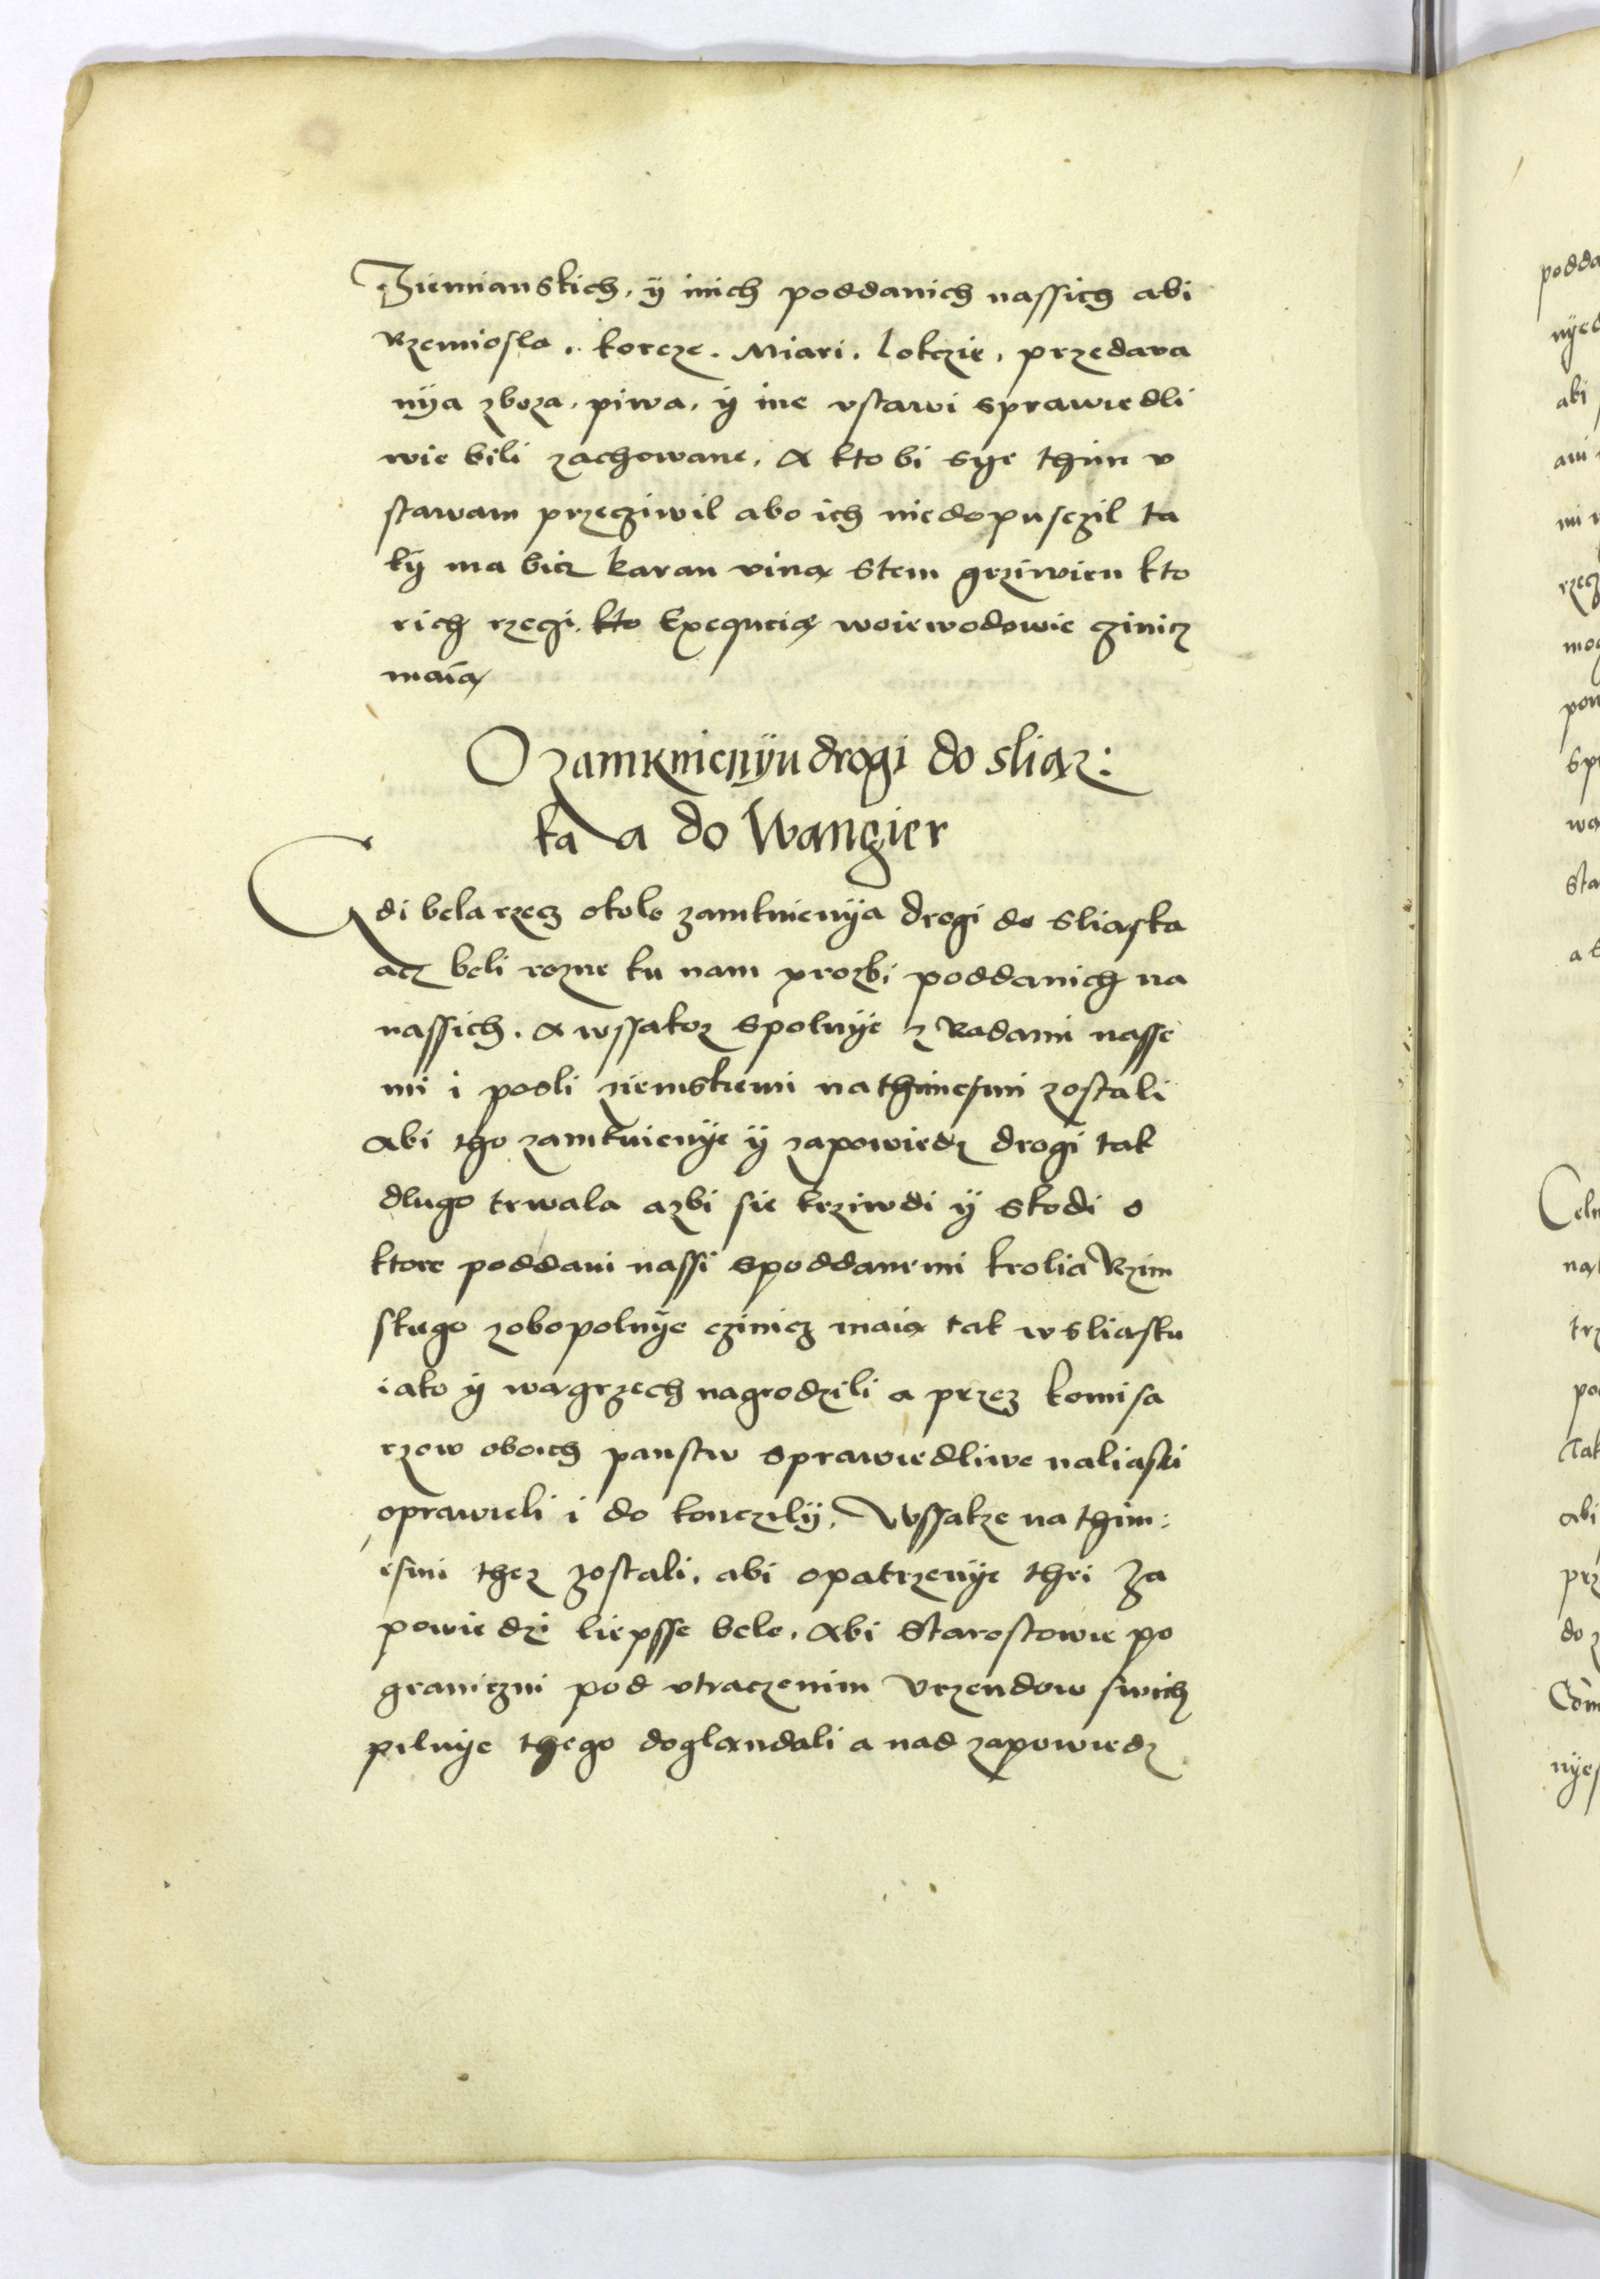 Ziemianskich, ÿ inich poddanich nassich abi
Rzemiosla, korcze. Miari. lokczie, przedava
nÿa zboza, piwa, ÿ ine vstawi sprawiedli
wie bili zachowane, A kto bi sÿe thim v
stawam przeciwil abo ich niedopusczil ta
kÿ ma bicz karan viną Stem grziwien kto
rich rzeczi. kto Exequcią woiewodowie czinicz
maią
O zamknienÿu drogi do sliąz:
ka a do Wangier
Gdi bela rzecz okolo zamknienÿa drogi do Sliąska
acz beli rozne ku nam prozbi poddanich na
nassich. A wssakoz spolnÿe z Radami nasse
mi i posli ziemskiemi na thimesmi zostali
Abi tho zamknienÿe ÿ zapowiedz drogi tak
dlugo trwala azbi sie krziwdi ÿ skodi o
ktore poddani nassi spoddanemi krolia Rzim
skiego zobopolnÿe czinicz maią tak w sliąsku
iako ÿ wągrzech nagrodzili a przez komisa
rzow oboich panstw sprawiedliwe naliaski
oprawieli i do konczilÿ, Wssakze na thim:
esmi thez zostali, abi opatrzenÿe thei Za
powiedzi liepsse belo, Abi Starostowie po
graniczni pod vtraczenim Vrzendow swich
pilnÿe thego doglandali a nad zapowiedz